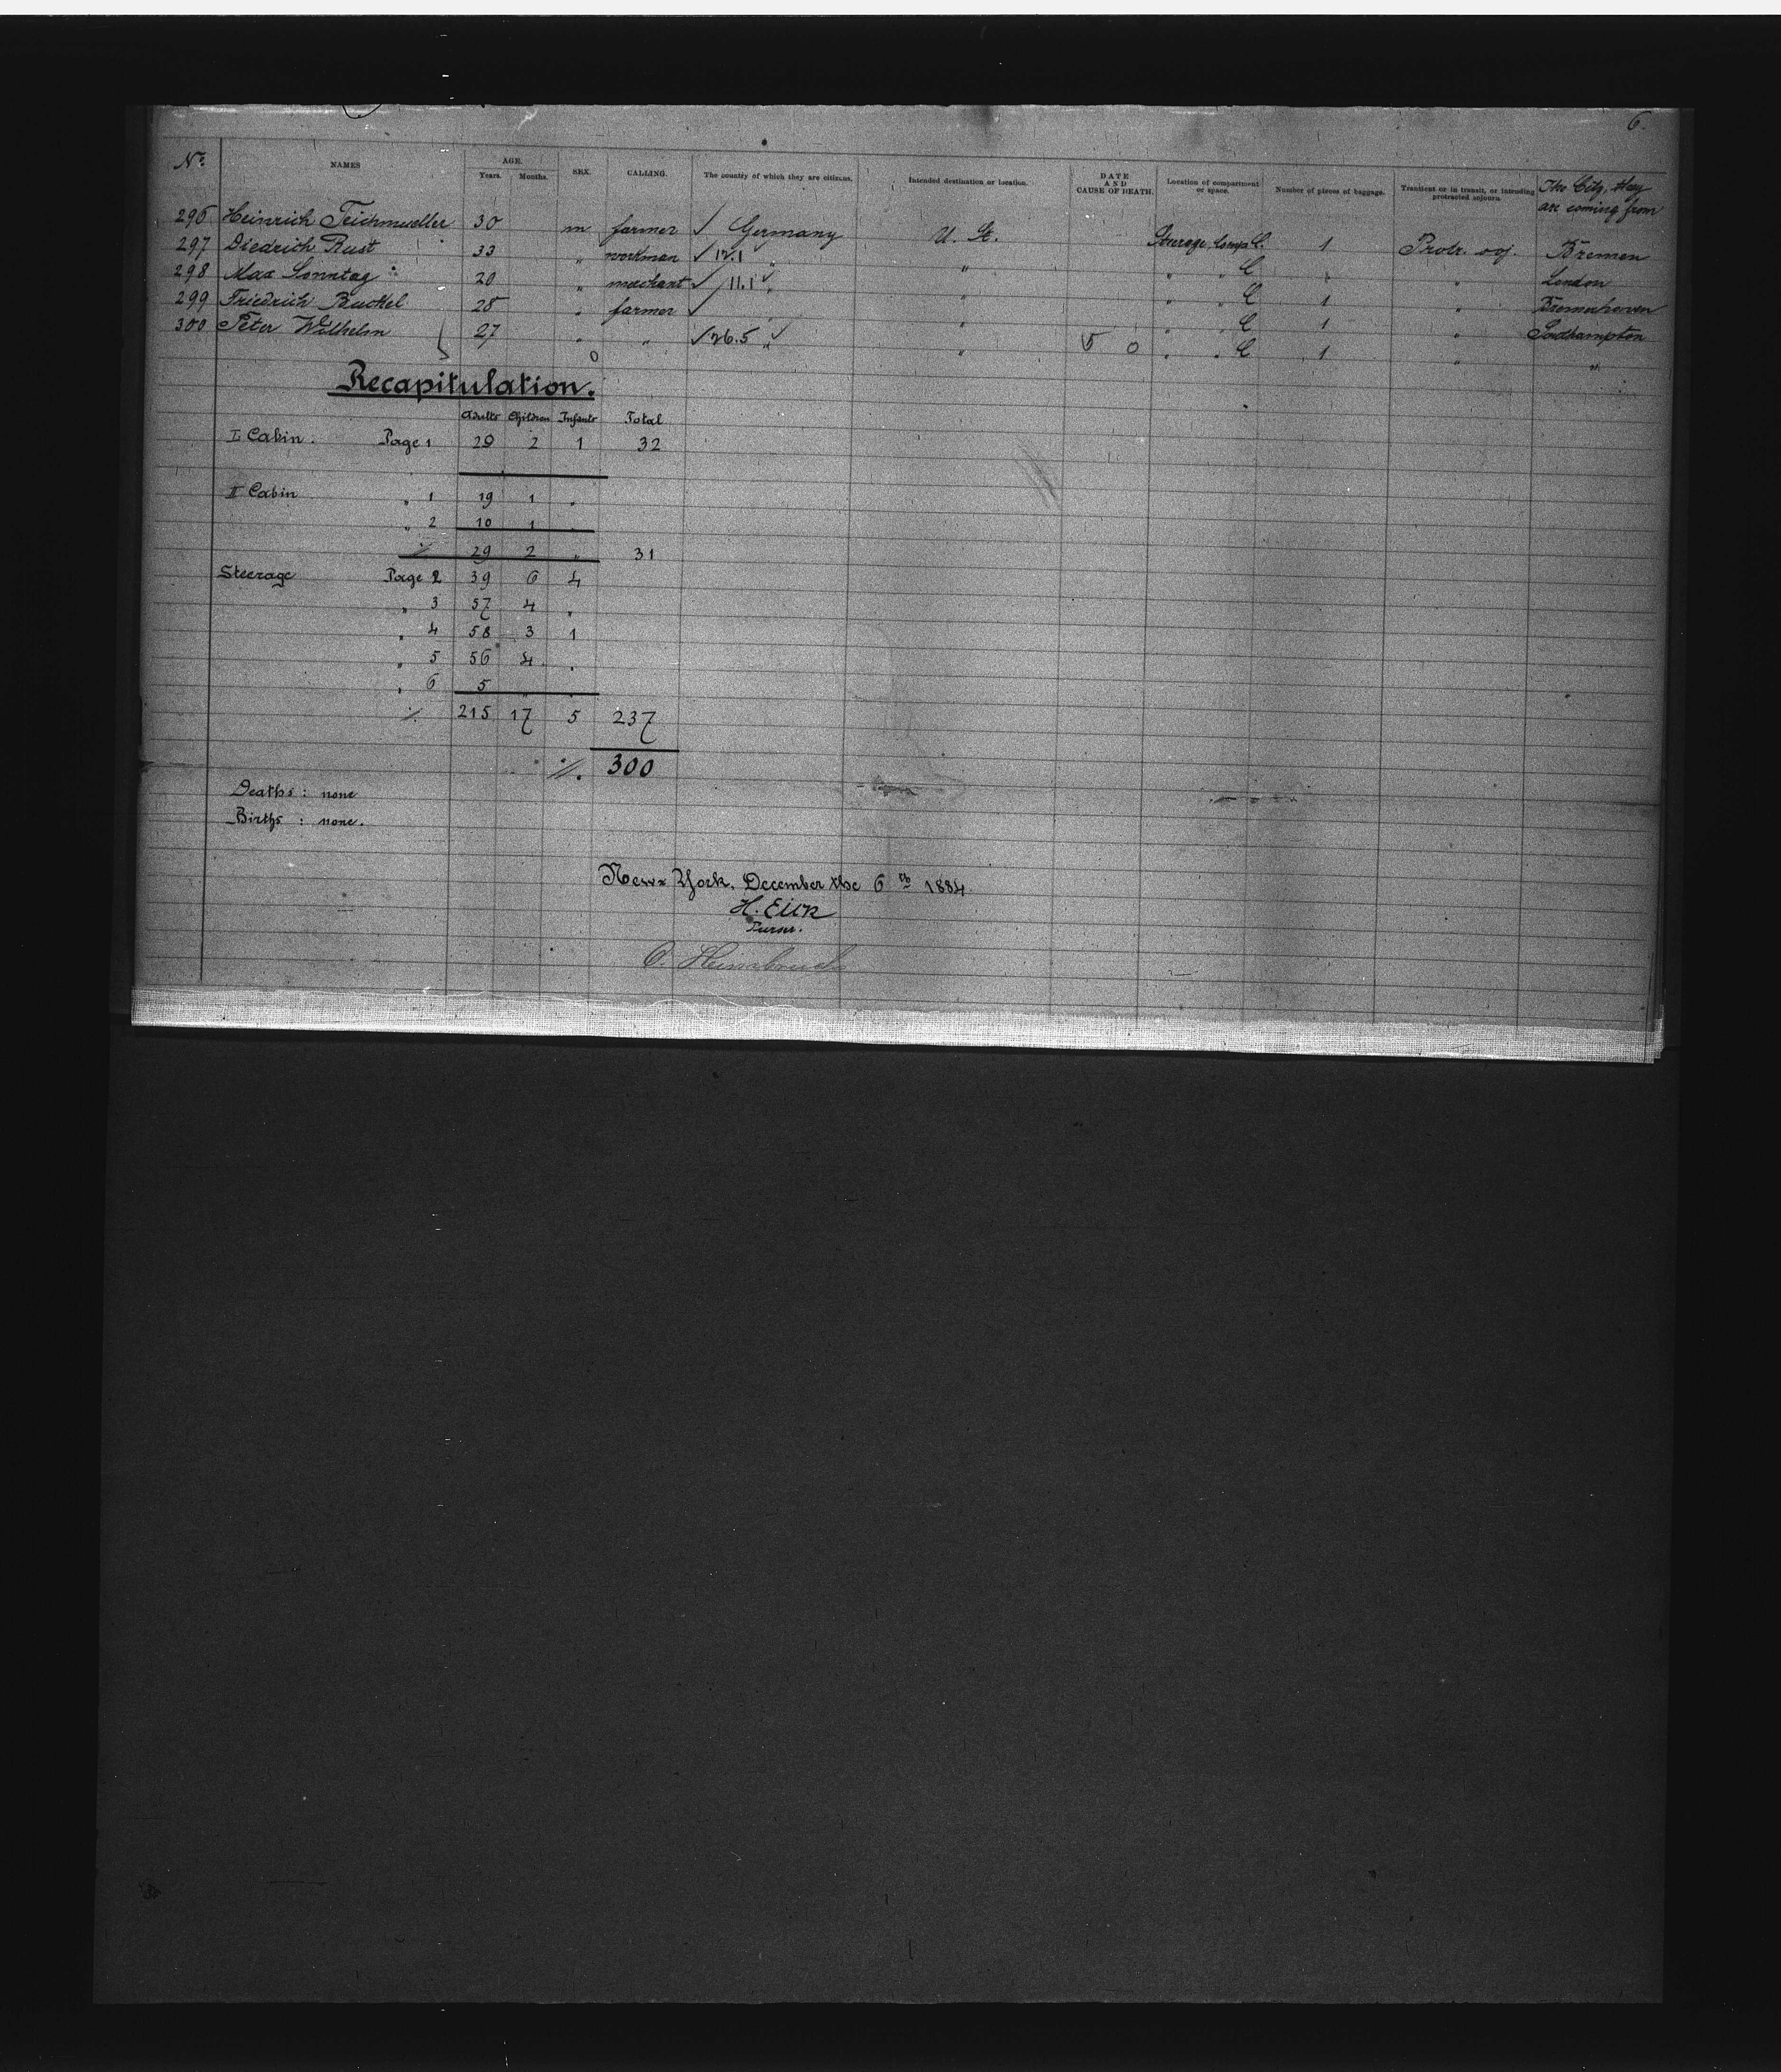 6.
No. NAMES AGE. Years. Months. SEX. CALLING. The country of which they are citizens. Intended destination or location. DATE AND CAUSE OF DEATH. Location of compartment or space. Number of pieces of baggage. Transient or in transit, or intending protracted sojourn. The City, they are coming from
296 Heinrich Teichmueller 30 m farmer ✓ Germany U. St. Steerage Comp. C. 1 Protr. soj. Bremen
297 Diedrich Rust 33 " workman ✓ 12.1 ✓ " " " " C " " London
298 Max Sonntag 20 " merchant ✓ 11.1 ✓ " " " " C 1 " Bremerhaven
299 Friedrich Buckel 28 " farmer ✓ " " " " C 1 " Southampton
300 Peter Wilhelm 27 " " ✓ 26.5 ✓ " " " " C 1 " "
5 0 5 0
Recapitulation.
Adults Children Infants Total
I Cabin. Page 1 29 2 1 32
II Cabin " 1 19 1 "
" 2 10 1 "
% 29 2 " 31
Steerage Page 2 39 6 4
" 3 57 4 "
" 4 58 3 1
" 5 56 4 "
" 6 5 " "
% 215 17 5 237
%. 300
Deaths : none
Births : none.
New-York, December the 6th 1884.
H. Eilk
Purser.